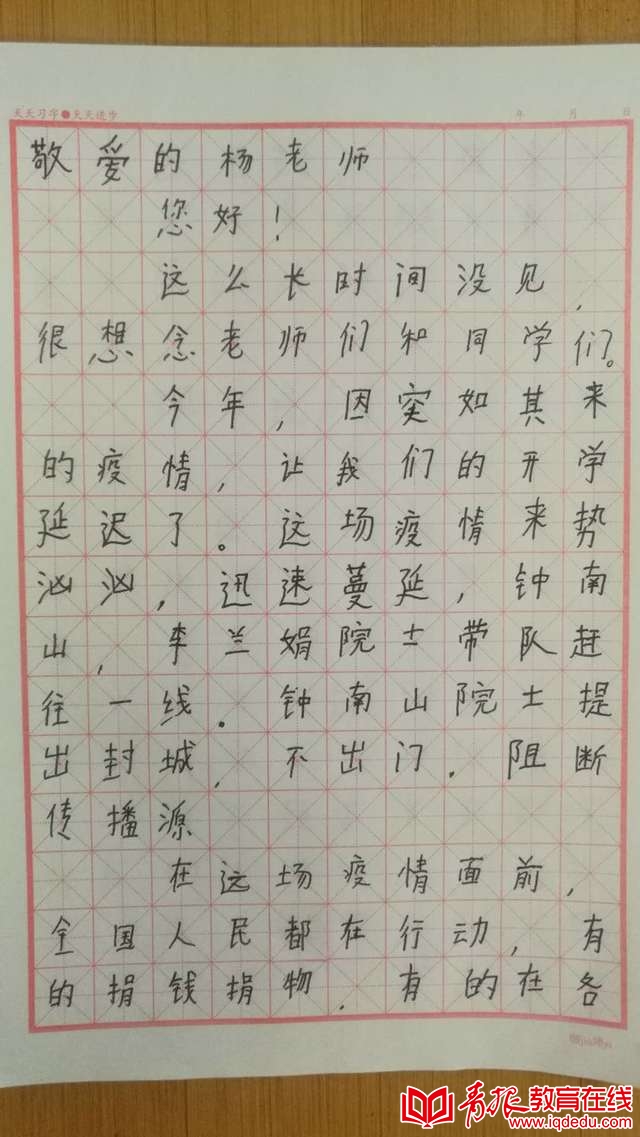 天天习字●天天进步 年 月 日
敬爱的杨老师
您好!
这么长时间没见,
很想念老师们和同学们。
今年,因突如其来
的疫情,让我们的开学
延迟了。这场疫情来势
汹汹,迅速蔓延,钟南
山,李兰娟院士带队赶
往一线。钟南山院士提
出封城,不出门.阻断
传播源
在这场疫情面前,
全国人民都在行动,有
的捐钱捐物.有的在各
青报教育在线
www.iqdedu.com